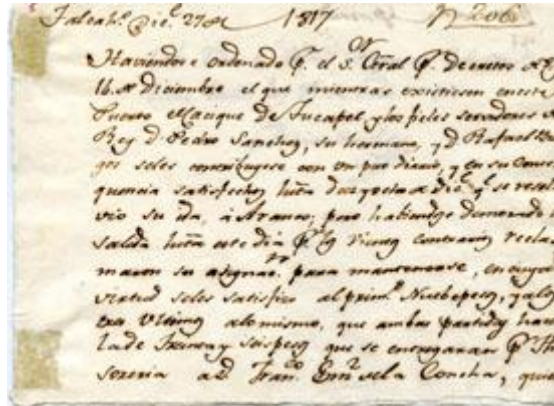 Talcah.º Dic.e 27 de 1817 N 206
Haviendose ordenado p.r el S.or Gral p.r decreto de
16. de Diciembre el que mientras existiesen en este
Puerto el Cacique de Tucapel y los fieles servidores
Rey d. Pedro Sanchez, su hermano, y d. Rafael
gos seles contribuyese con un p.so diario, y en su Conse
quencia satisfechos hasta
vio su ida, á Arauco; pero habiendose demorado
salida hasta este dia p.r los vientos contrarios recla
maron su asignac.on para mantenerse, en cuya
virtud seles satisfizo al prim.o Nuebe pesos, y a los
tres Ultimos a lo mismo, que ambas partidas hac
la de treinta y seis pesos que se entregaran p.r the
soreria a d. Fran.co de la Concha, quie